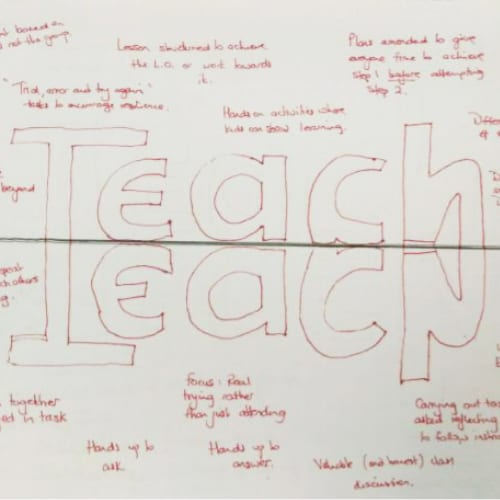 based on
not the group.
Lesson structured to achieve
the L.O. or work towards
it.
Plans amended to give
everyone time to achieve
Step 1 before attempting
Step 2.
"Trial, error and try again"
tasks to encourage resilience.
Hands on activities where
kids can show learning.
beyond
Teach
Teach
others
together
in task
Focus: Real
trying rather
than just attending
Hands up to
ask.
Hands up to
answer.
Valuable (and honest) class
discussion.
Carrying out
asked reflecting
to follow